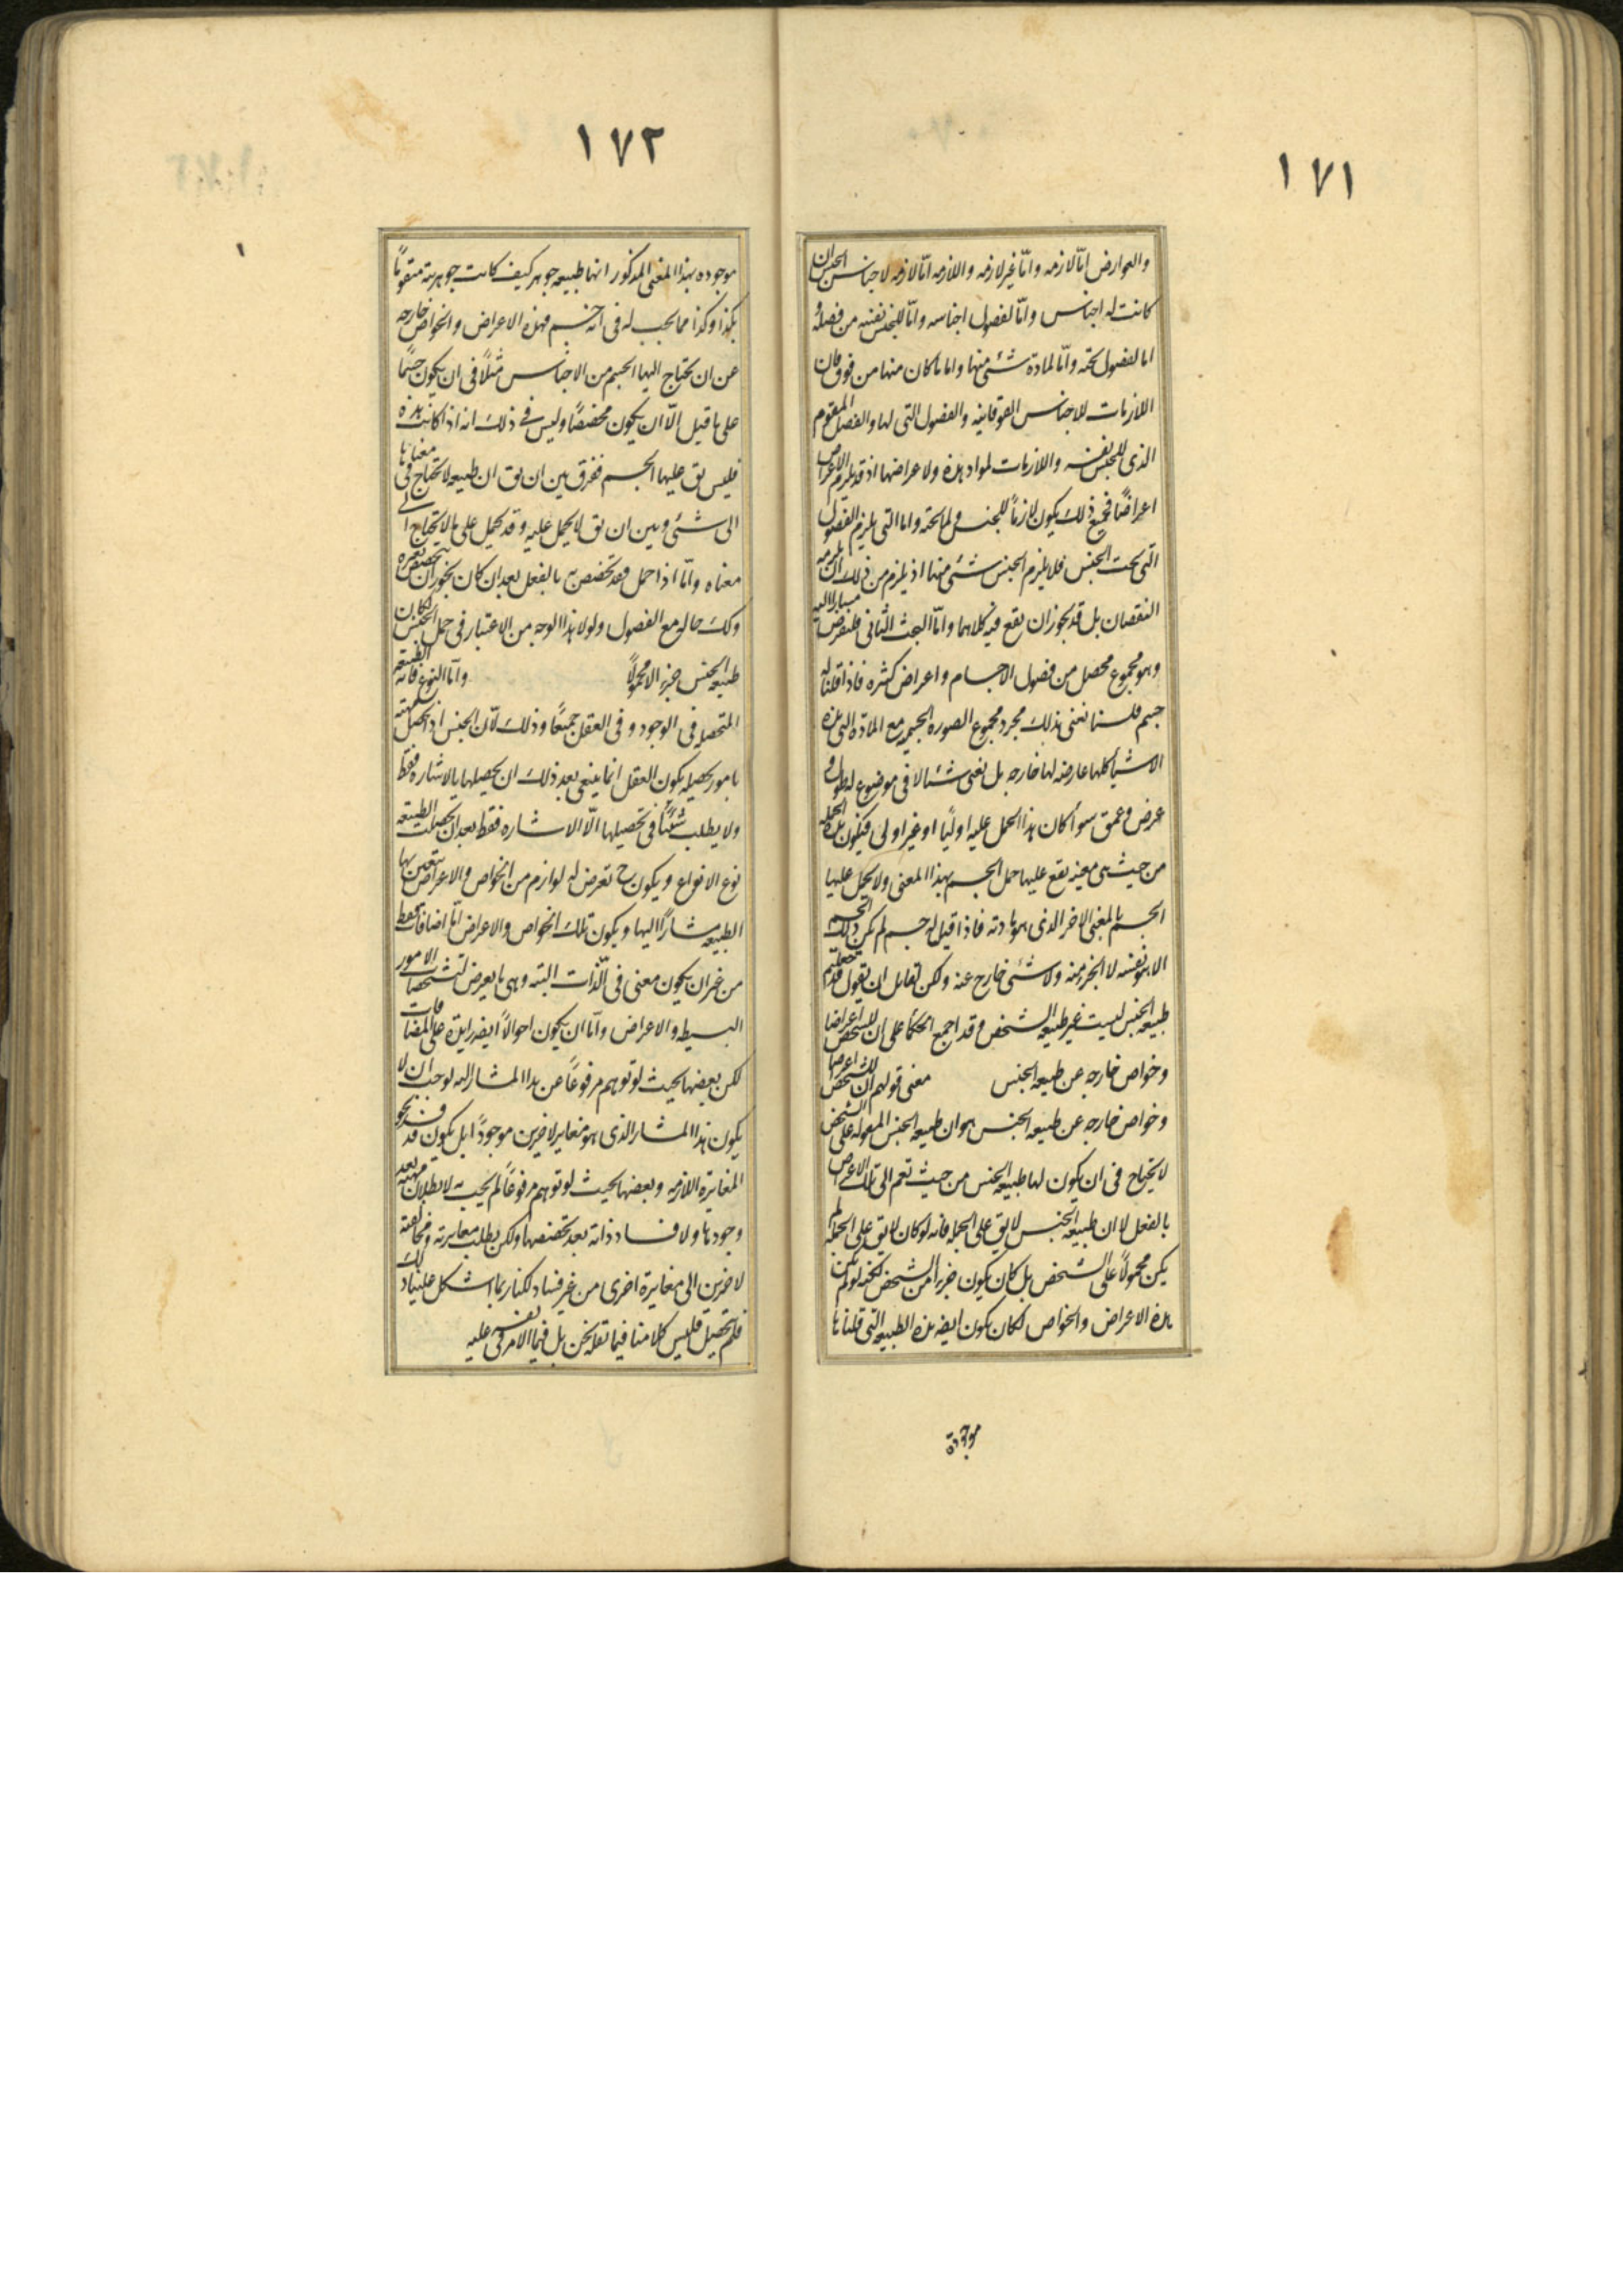 ١٧١
والعوارض امّا لازمه وامّا غير لازمه واللازمه امّا لازمه لاجناس الجنس ان
كانت له اجناس وامّا لفصول اجناسه وامّا للجنس نفسه من فصله و
اما لفصول تحته وامّا لمادة شئ منها واما ما كان منها من فوق فان
اللازمات للاجناس الفوقانيه والفصول التى لها والفصل المقوم
الذى للجنس نفسه واللازمات لمواد هذه ولاعراضها اذ قد يلزم الاعراض
اعراضًا فجميع ذلك يكون لازمًا للجنس ولما تحته واما التى يلزم الفصول
التى تحت الجنس فلا يلزم الجنس شئ منها اذ يلزم من ذلك ان يلزمه
النقيضان بل قد يجوز ان يقع فيه كلاهما وامّا البحث الثانى فلنفرض مشارا اليه
وهو مجموع محصل من فصول الاجسام واعراض كثيره فاذا قلنا له
جسم فلسنا نعنى بذلك مجرد مجموع الصوره الجسميه مع المادّه التى هذه
الاشيا كلها عارضه لها خارجه بل نعنى شئا لا فى موضوع له طول و
عرض وعمق سوآ كان هذا الحمل عليه اوليًا او غير اولى فيكون هذه الجمله
من حيث هى معينه يقع عليها حمل الجسم بهذا المعنى ولا يحمل عليها
الجسم بالمعنى الاخر الذى هو مادته فاذا قيل له جسم لم يكن ذلك الجسم
الا هو نفسه لا الجزء منه ولا شئ خارج عنه ولكن لقايل ان يقول قد جعلتم
طبيعه الجنس ليست غير طبيعه الشخص وقد اجمع الحكما على ان للشخص اعراضا
وخواص خارجه عن طبيعه الجنس معنى قولهم ان للشخص اعراضا
وخواص خارجه عن طبيعه الجنس هو ان طبيعه الجنس المقوله على الشخص
لا يحتاج فى ان يكون لها طبيعه الجنس من حيث تعم الى تلك الاعراض
بالفعل لا ان طبيعه الجنس لا يق على الجمله فانه لو كان لا يق على الجمله لم
يكن محمولاً على الشخص بل كان يكون جزءا من الشخص لكنه لو لم يكن
هذه الاعراض والخواص لكان يكون ايضه هذه الطبيعه التى قلناها
موجودة
١٧٢
موجوده بهذا المعنى المذكور انها طبيعه جوهر كيف كانت جوهريته متقومًا
بكذا وكذا مما يجب له فى انه جسم فهذه الاعراض والخواص خارجه
عن ان يحتاج اليها الجسم من الاجناس مثلاً فى ان يكون جسمًا
على ما قيل الّا ان يكون مخصصًا وليس فى ذلك انه اذا كانت هذه
فليس يق عليها الجسم ففرق بين ان يق ان طبيعه لا تحتاج فى معناها
الى شئ وبين ان يق لا يحمل عليه وقد يحمل على ما لا يحتاج اليه فى
معناه وامّا اذا حمل فقد تخصص به بالفعل بعد ان كان يجوز ان يتخصص بغيره
وكك حاله مع الفصول ولولا هذا الوجه من الاعتبار فى حمل الجنس لكان
طبيعه الجنس جزءا لا محمولاً وامّا النوع فانه الطبيعه
المتحصله فى الوجود وفى العقل جميعًا وذلك لان الجنس اذا تحصل مهيته
بامور يحصله يكون العقل انما ينبغى بعد ذلك ان يحصلها بالاشاره فقط
ولا يطلب شئيًا فى تحصيلها الّا الاشاره فقط بعد ان تحصلت الطبيعه
نوع الانواع ويكون ح تعرض له لوازم من الخواص والاعراض يتعين بها
الطبيعه مشارًا اليها ويكون تلك الخواص والاعراض امّا اضافات فقط
من غير ان يكون معنى فى الذّات البته وهى ما يعرض لتشخصات الامور
البسيطه والاعراض وامّا ان يكون احوالاً ايضه زايدة على المضافات
لكن بعضها بحيث لو توهم مرفوعًا عن هذا المشار اليه لوجب ان لا
يكون هذا المشار الذى هو مغاير لاخرين موجودًا بل يكون قد فسد نحو
المغايرة اللازمه وبعضها بحيث لو توهم مرفوعًا لم يجب به لا بطلان مهيته بعد
وجودها ولا فساد ذاته بعد تخصصها ولكن بطلت مغايرته ومخالفته
لاخرين الى مغايرة اخرى من غير فساد لكنا ربما اشكل علينا ذلك
فلم تحصيل فليس كلامنا فيما نعله نحن بل فيما الامر فى نفسه عليه